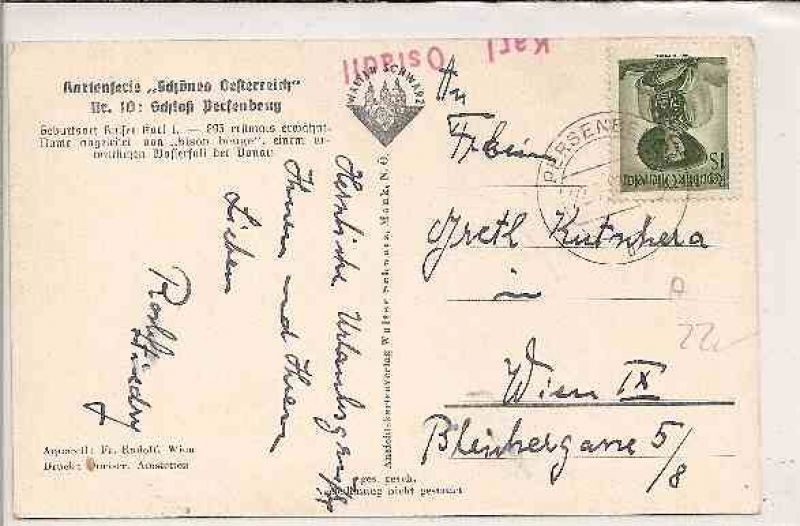 Kartenserie „Schönes Oesterreich"
Nr. 10: Schloß Persenbeug
Geburtsort Kaiser Karl I. — 893 erstmals erwähnt.
Name abgeleitet von „bison beuge", einem
Wasserfall der Donau
WALTER SCHWARZ
Karl Ostadil
An
Frau
Gretl Kutschera
in
Wien IX
Bleichergasse 5/8
Herrliche Urlaubsgrüße
Ihnen und Ihren
Lieben
Aquarell: Fr. Rudolf, Wien
Druck: Amstetten
Ansichtskartenverlag Walter Schwarz, Mank, N.Ö.
ges. gesch.
nicht gestattet
PERSENB
1S
Republik Österreich
A
22